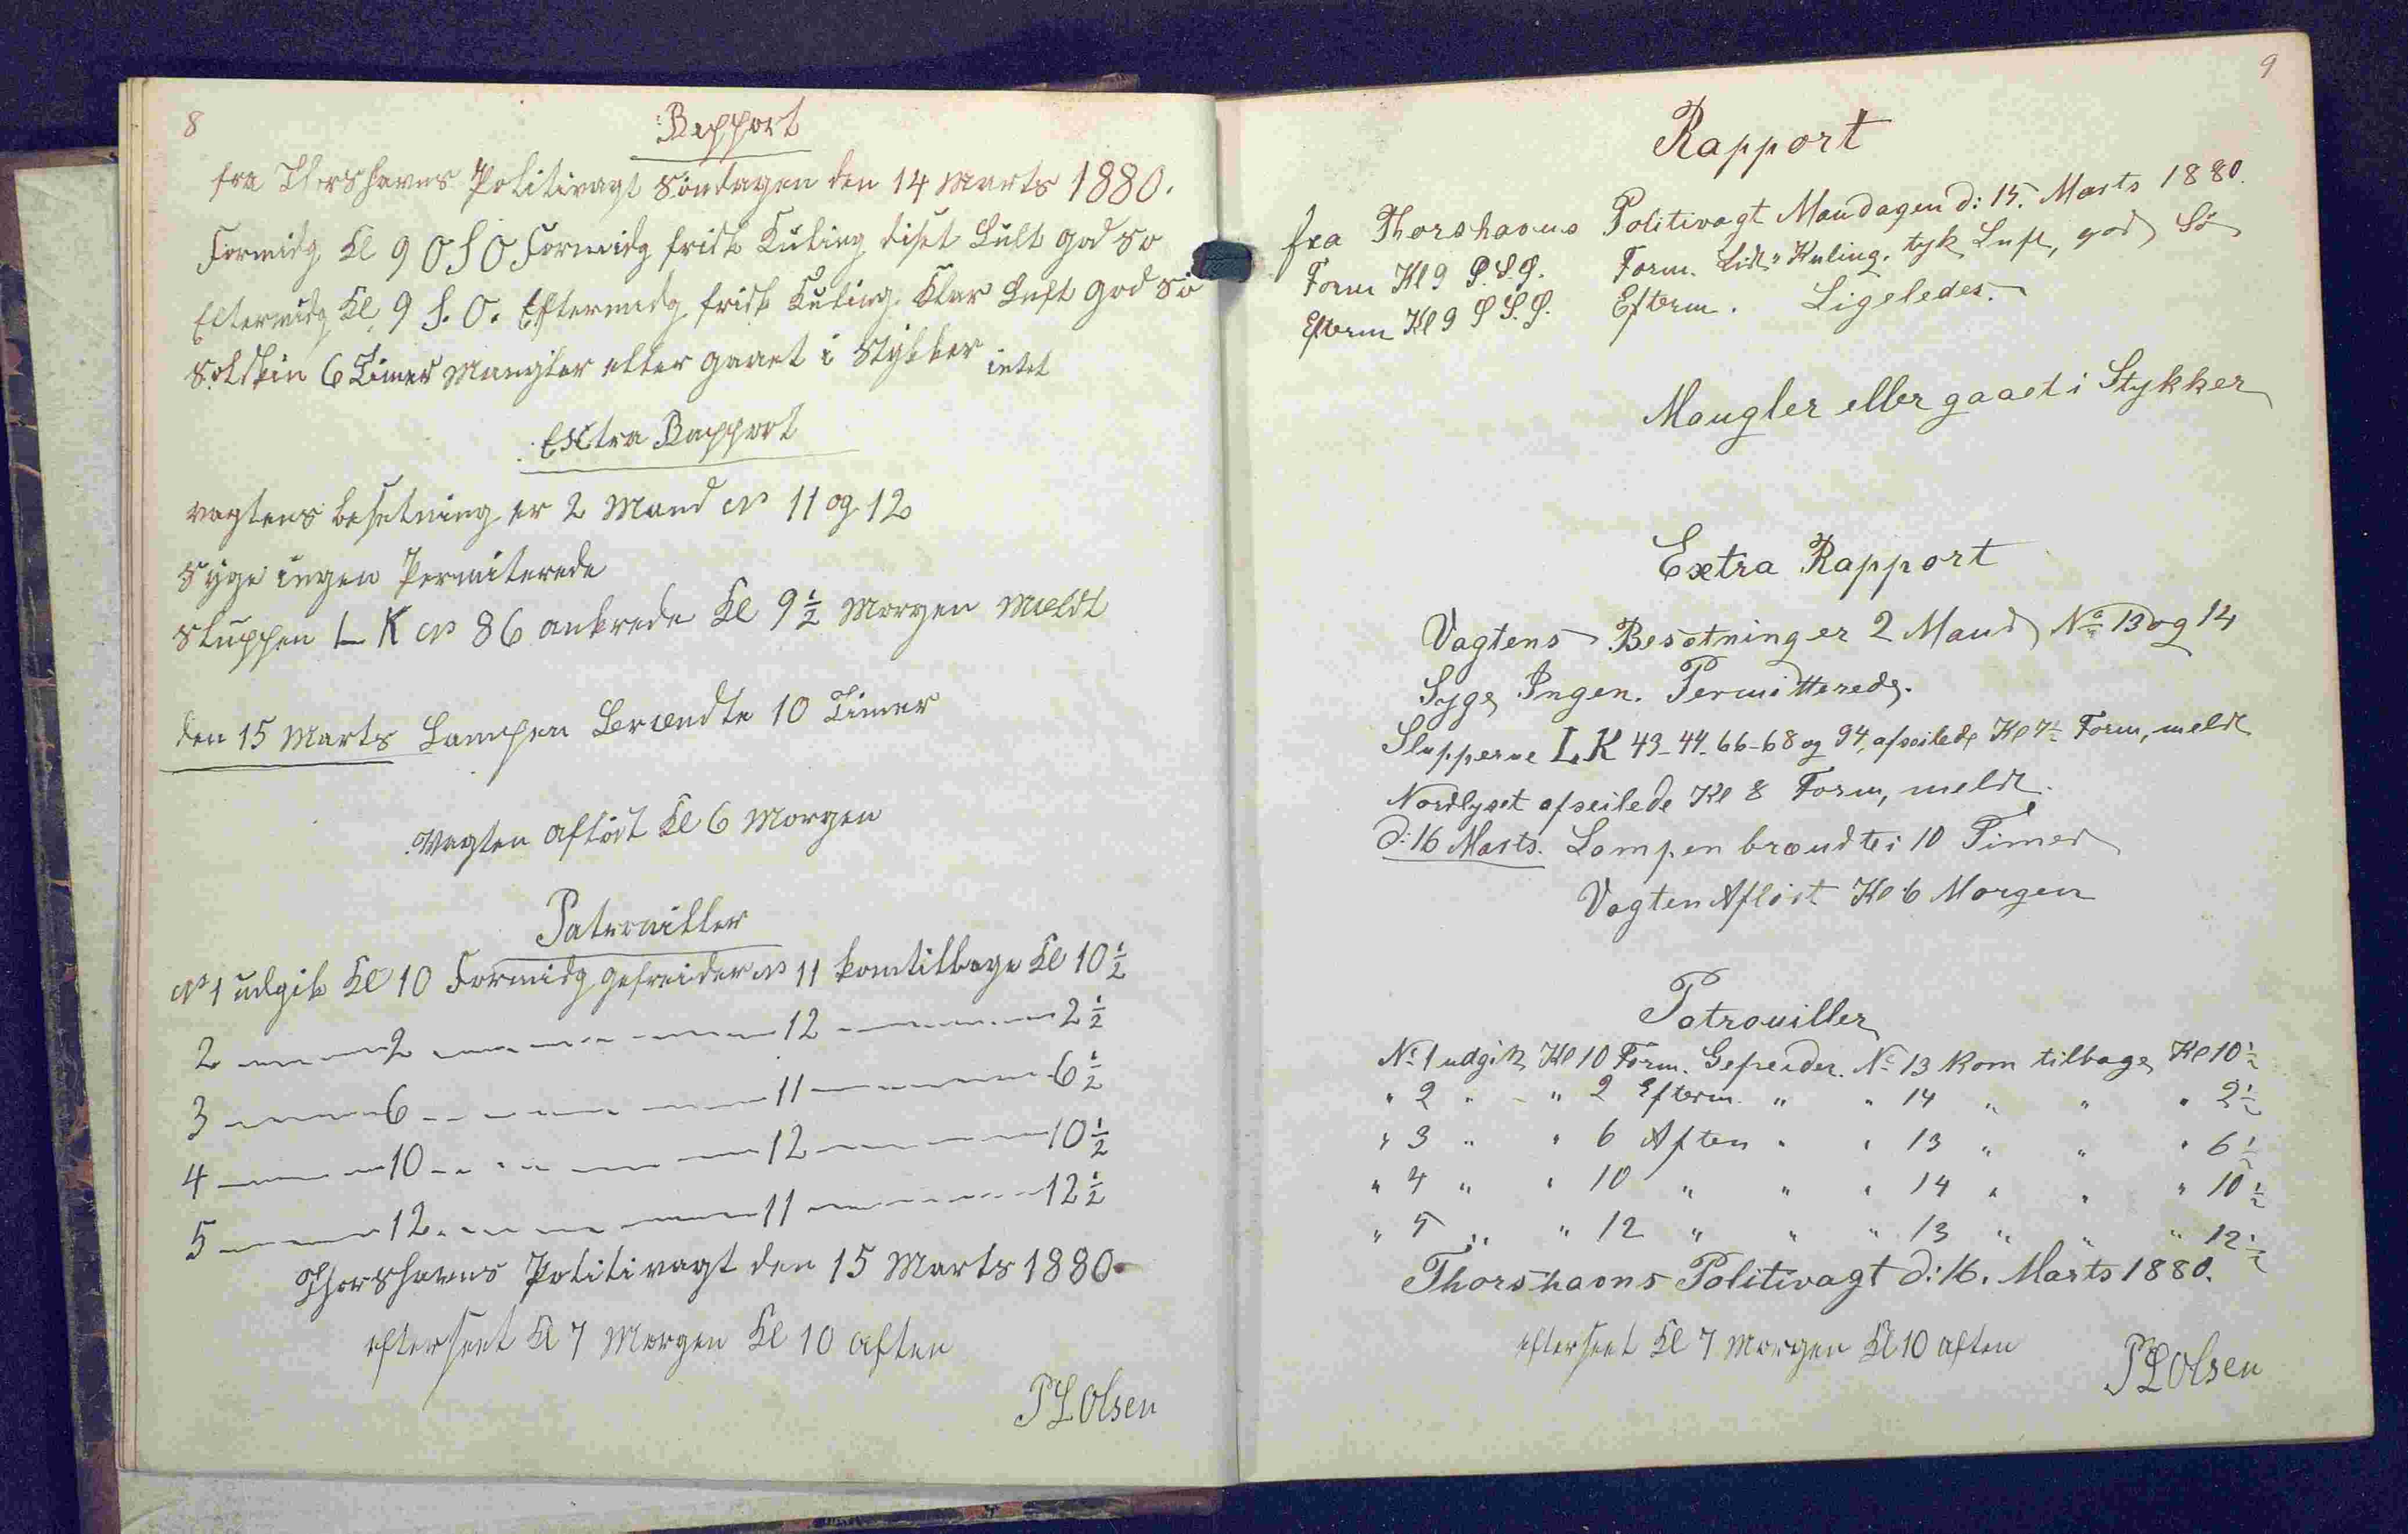 8
Rapport
fra Thorshavns Politivagt Söndagen den 14 Marts 1880.
Formidg Kl 9 O S O Formidg frisk Kuling diset Luft god Sö
Eftermidg Kl 9 S. O. Eftermidg frisk Kuling Klar Luft god Sö
Solskin 6 Timer Mangler eller gaaet i Stykker intet
Extra Rapport
Vagtens besetning er 2 Mand No 11 og 12
Syge ingen Permiterede
Sluppen L K No 86 ankrede Kl 9 1/2 Morgen Meldt
den 15 Marts Lampen Brændte 10 Timer
Vagten aflöst Kl 6 Morgen
Patrouiller
No 1 udgik Kl 10 Formidg gefreider No 11 kom tilbage Kl 10 1/2
2 — — 2 — — — 12 — — 2 1/2
3 — — 6 — — — 11 — — 6 1/2
4 — — 10 — — — 12 — — 10 1/2
5 — — 12 — — — 11 — — 12 1/2
Thorshavns Politivagt den 15 Marts 1880
efterseet Kl 7 Morgen Kl 10 aften
P L Olsen
9
Rapport
fra Thorshavns Politivagt Mandagen d: 15. Marts 1880.
Form Kl 9 O.S.O. Form. Lidt Kuling, tyk Luft, god Sö
Efterm Kl 9 O S.O. Efterm. Ligeledes.
Mangler eller gaaet i Stykker
Extra Rapport
Vagtens Besetning er 2 Mand No 13 og 14
Syge Ingen. Permitterede.
Slupperne L.K 43-44-66-68 og 94, afseilede Kl 7 1/2 Form, meldt
Nordlyset afseilede Kl 8 Form, meldt.
d: 16 Marts. Lampen brændte i 10 Timer
Vagten Aflöst Kl 6 Morgen
Patrouiller
No 1 udgik Kl 10 Form. Gefreider. No 13 kom tilbage Kl 10 1/2
" 2 " " 2 Efterm. " " 14 " " " 2 1/2
" 3 " " 6 Aften " " 13 " " " 6 1/2
" 4 " " 10 " " " 14 " " " 10 1/2
" 5 " " 12 " " " 13 " " " 12 1/2
Thorshavns Politivagt d: 16. Marts 1880.
efterseet Kl 7 Morgen Kl 10 aften
P L Olsen